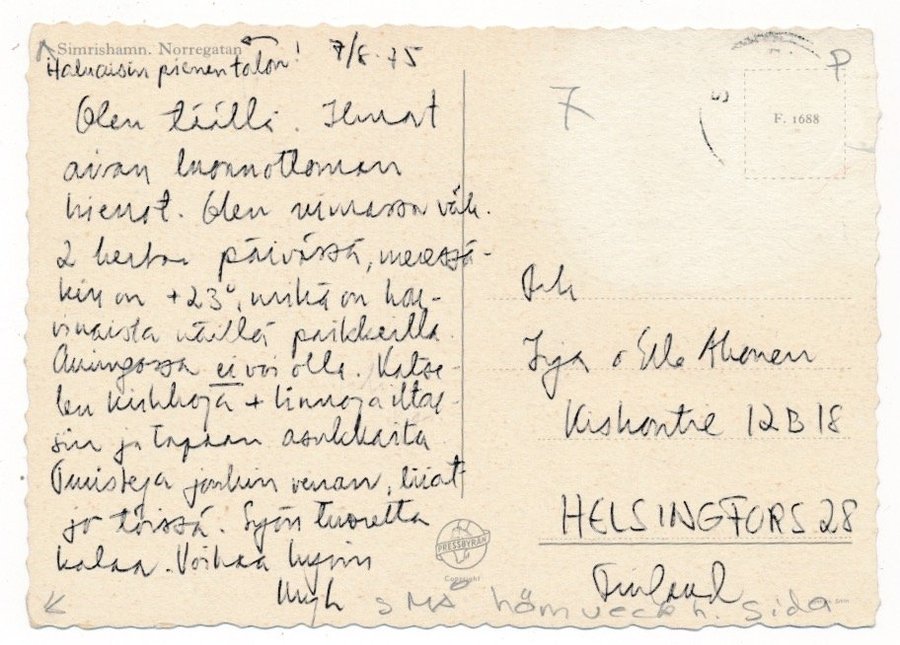 Simrishamn. Norregatan
Haluaisin pienen talon! 7/8.75
Olen täällä. Ilmat
aivan luonnottoman
hienot. Olen uimassa väh.
2 kertaa päivässä, meressä-
kin on +23°, mikä on har-
vinaista näillä paikkeilla.
Auringossa ei voi olla. Katse-
len kirkkoja + linnoja iltai-
sin ja tapaan asukkaita
Turisteja jonkin verran, liiat
jo töissä. Syön tuoretta
kalaa. Voikaa hyvin
7
P
F. 1688
Irja o Elle Ahonen
Kiskontie 12 B 18
HELSINGFORS 28
Finland
PRESSBYRÅN
Copyright
SMÅ hörnveck h. sida